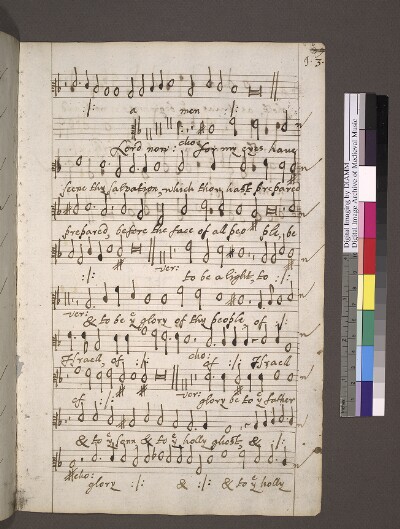 3.
:/: a men :/:
Lord now : cho: for my eyes have
seene thy salvation, which thou hast prepared
prepared, before the face of all peo ple, be
:/: ver: to be a light, to :/:
ver: & to be ye glory of thy people, of :/:
Israell of :/: cho: of :/: Israell
of :/: ver: glory be to ye father
& to ye sonn & to ye holly ghost, & :/:
cho: glory :/: & :/: & to ye holly
Digital Imaging by DIAMM
Digital Image Archive of Medieval Music